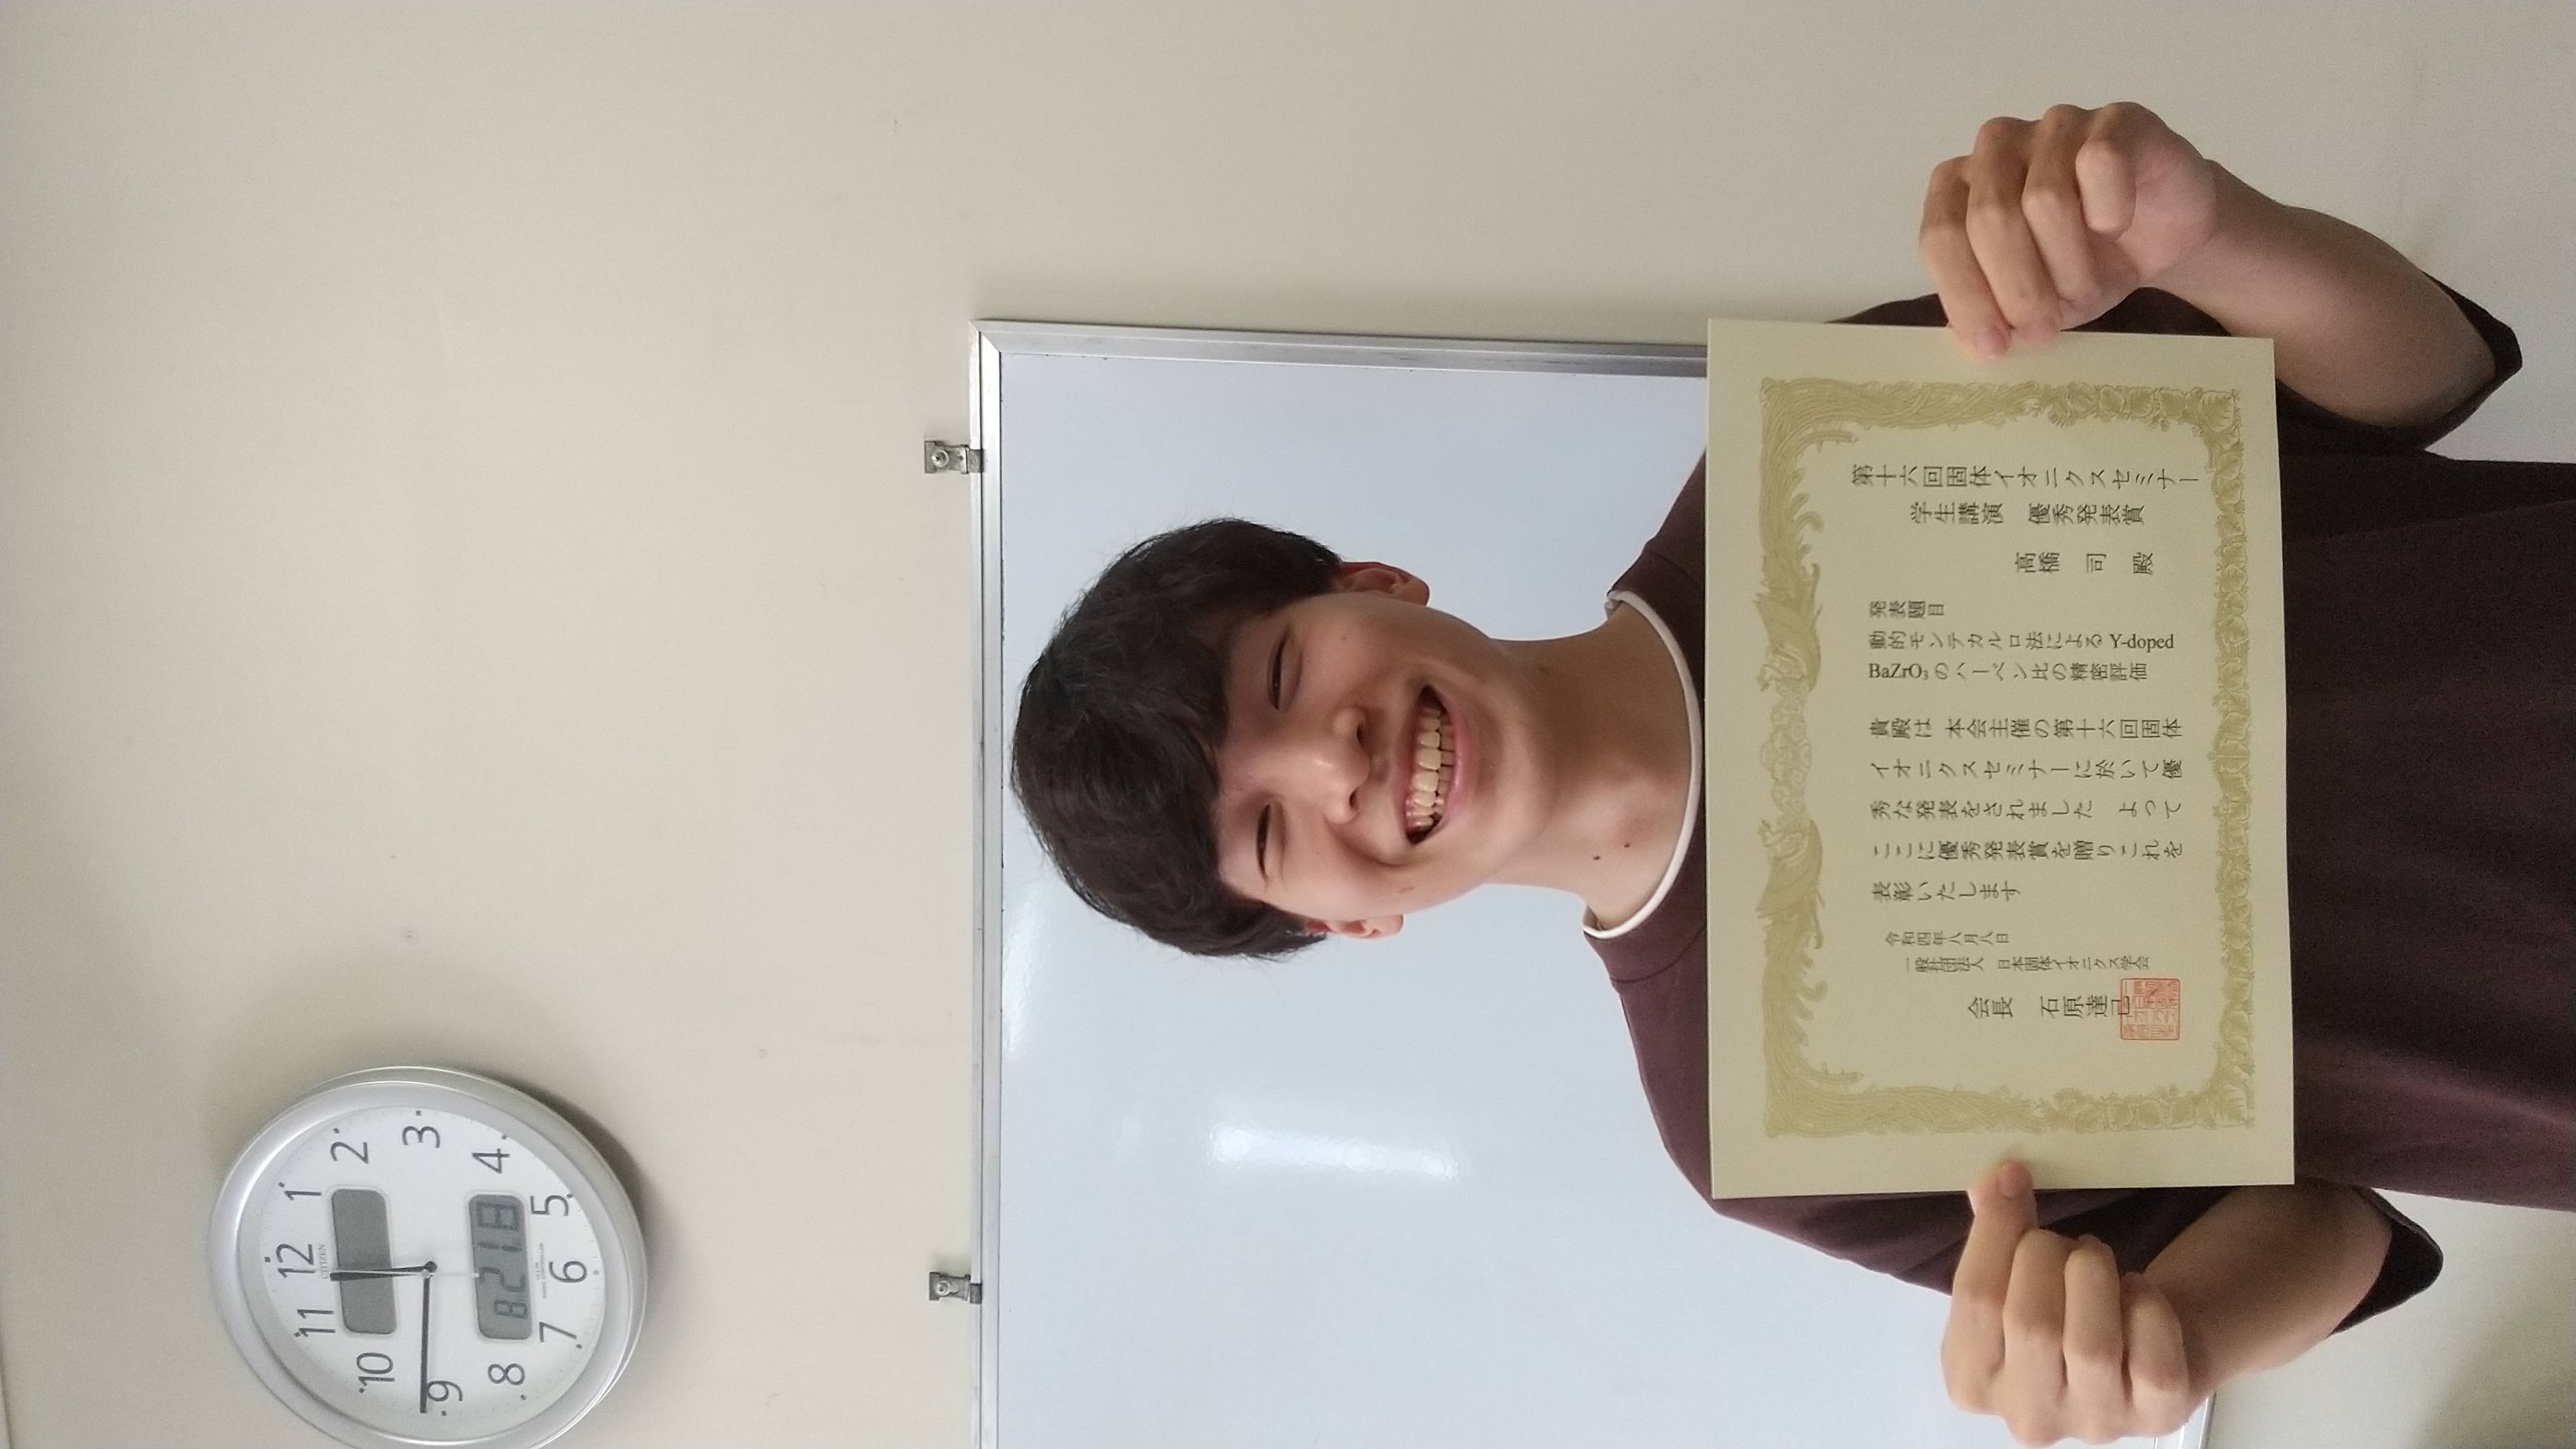 第十六回固体イオニクスセミナー
学生講演　優秀発表賞
高橋　司　殿
発表題目
動的モンテカルロ法による Y-doped
BaZrO₃ のヘーベン比の精密評価
貴殿は 本会主催の第十六回固体
イオニクスセミナーに於いて優
秀な発表をされました よって
ここに優秀発表賞を贈りこれを
表彰いたします
令和四年八月八日
一般社団法人 日本固体イオニクス学会
会長　石原達己
12
1
2
3
4
5
6
7
8
9
10
11
CITIZEN